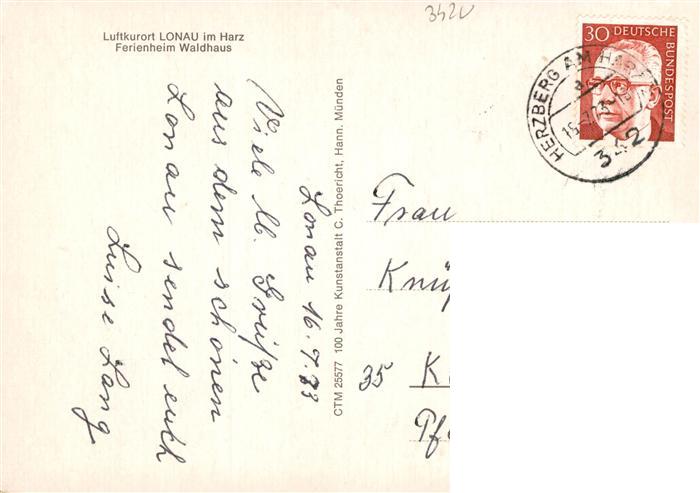 3420
Luftkurort LONAU im Harz
Ferienheim Waldhaus
30 DEUTSCHE BUNDESPOST
HERZBERG AM HARZ
a
16.-7.73.-
342
Lonau 16.7.73
Viele ll. Grüße
aus dem schönen
Lonau sendet euch
Luise Lang
CTM 25577 100 Jahre Kunstanstalt C. Thoericht, Hann. Münden
Frau
35